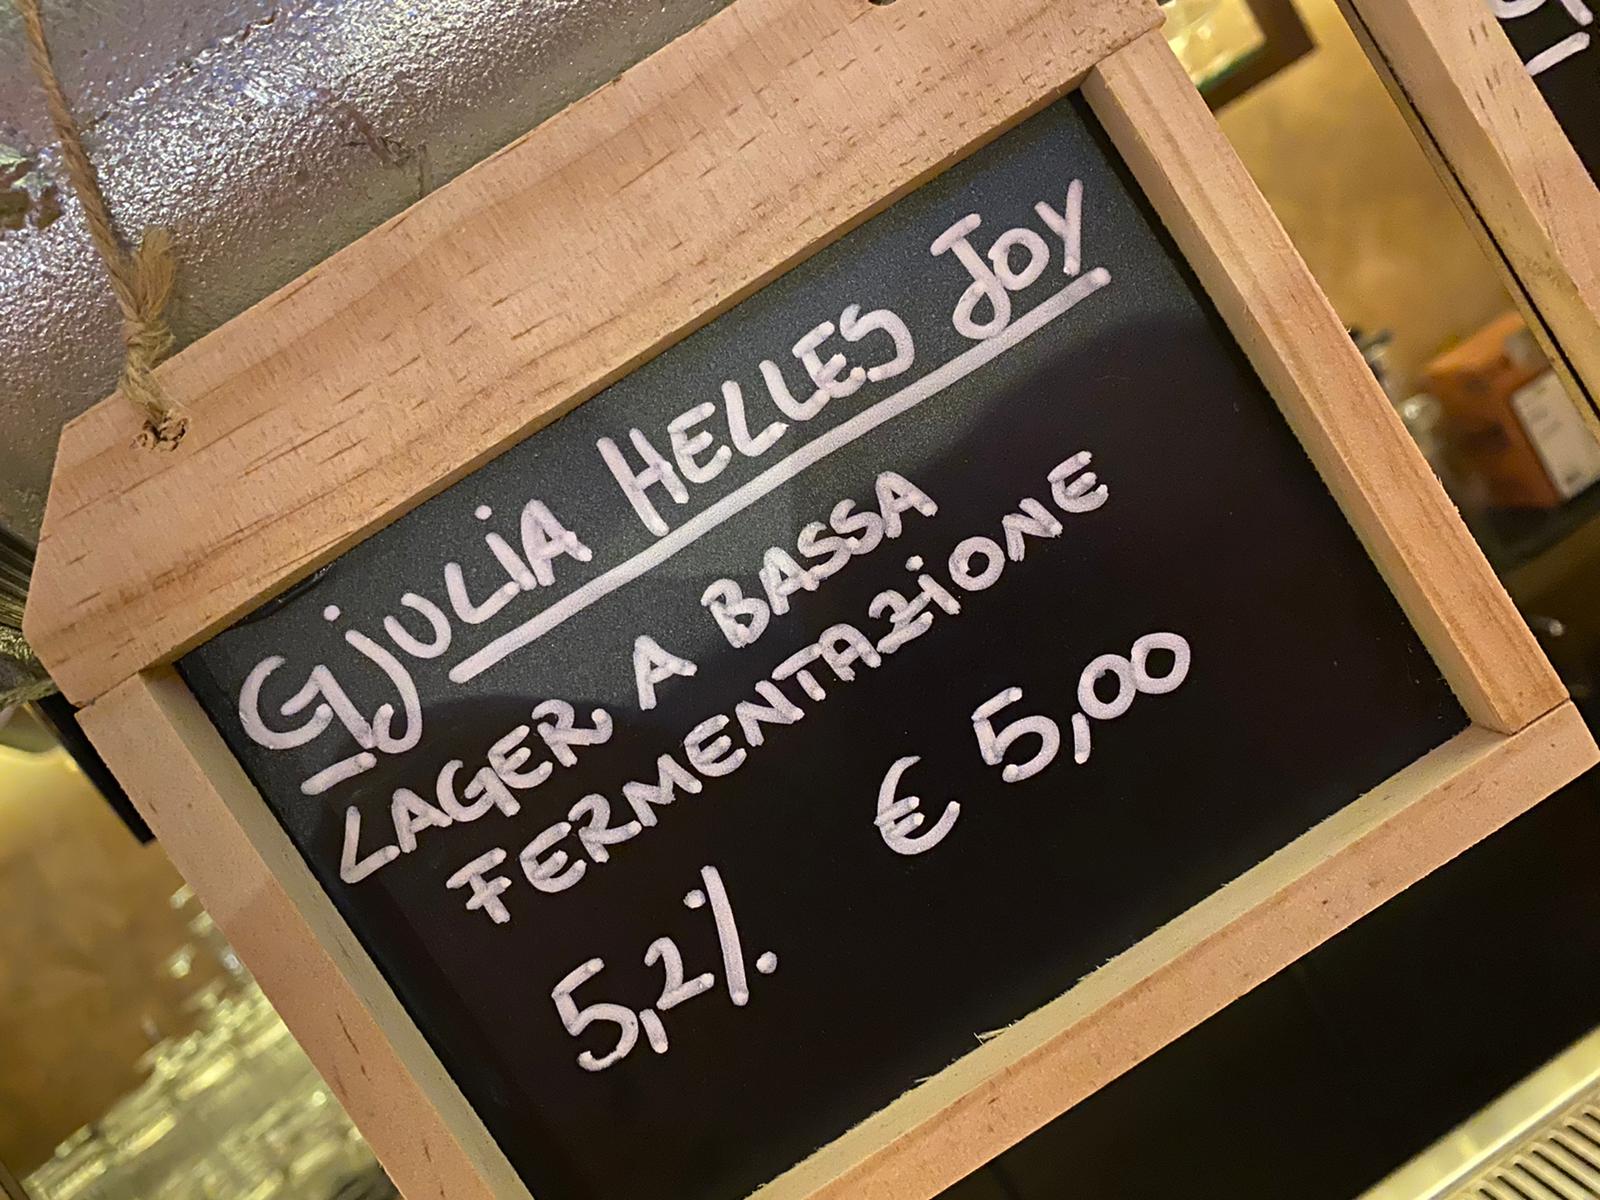 GJULIA HELLES JOY
LAGER A BASSA
FERMENTAZIONE
€ 5,00
5,2%